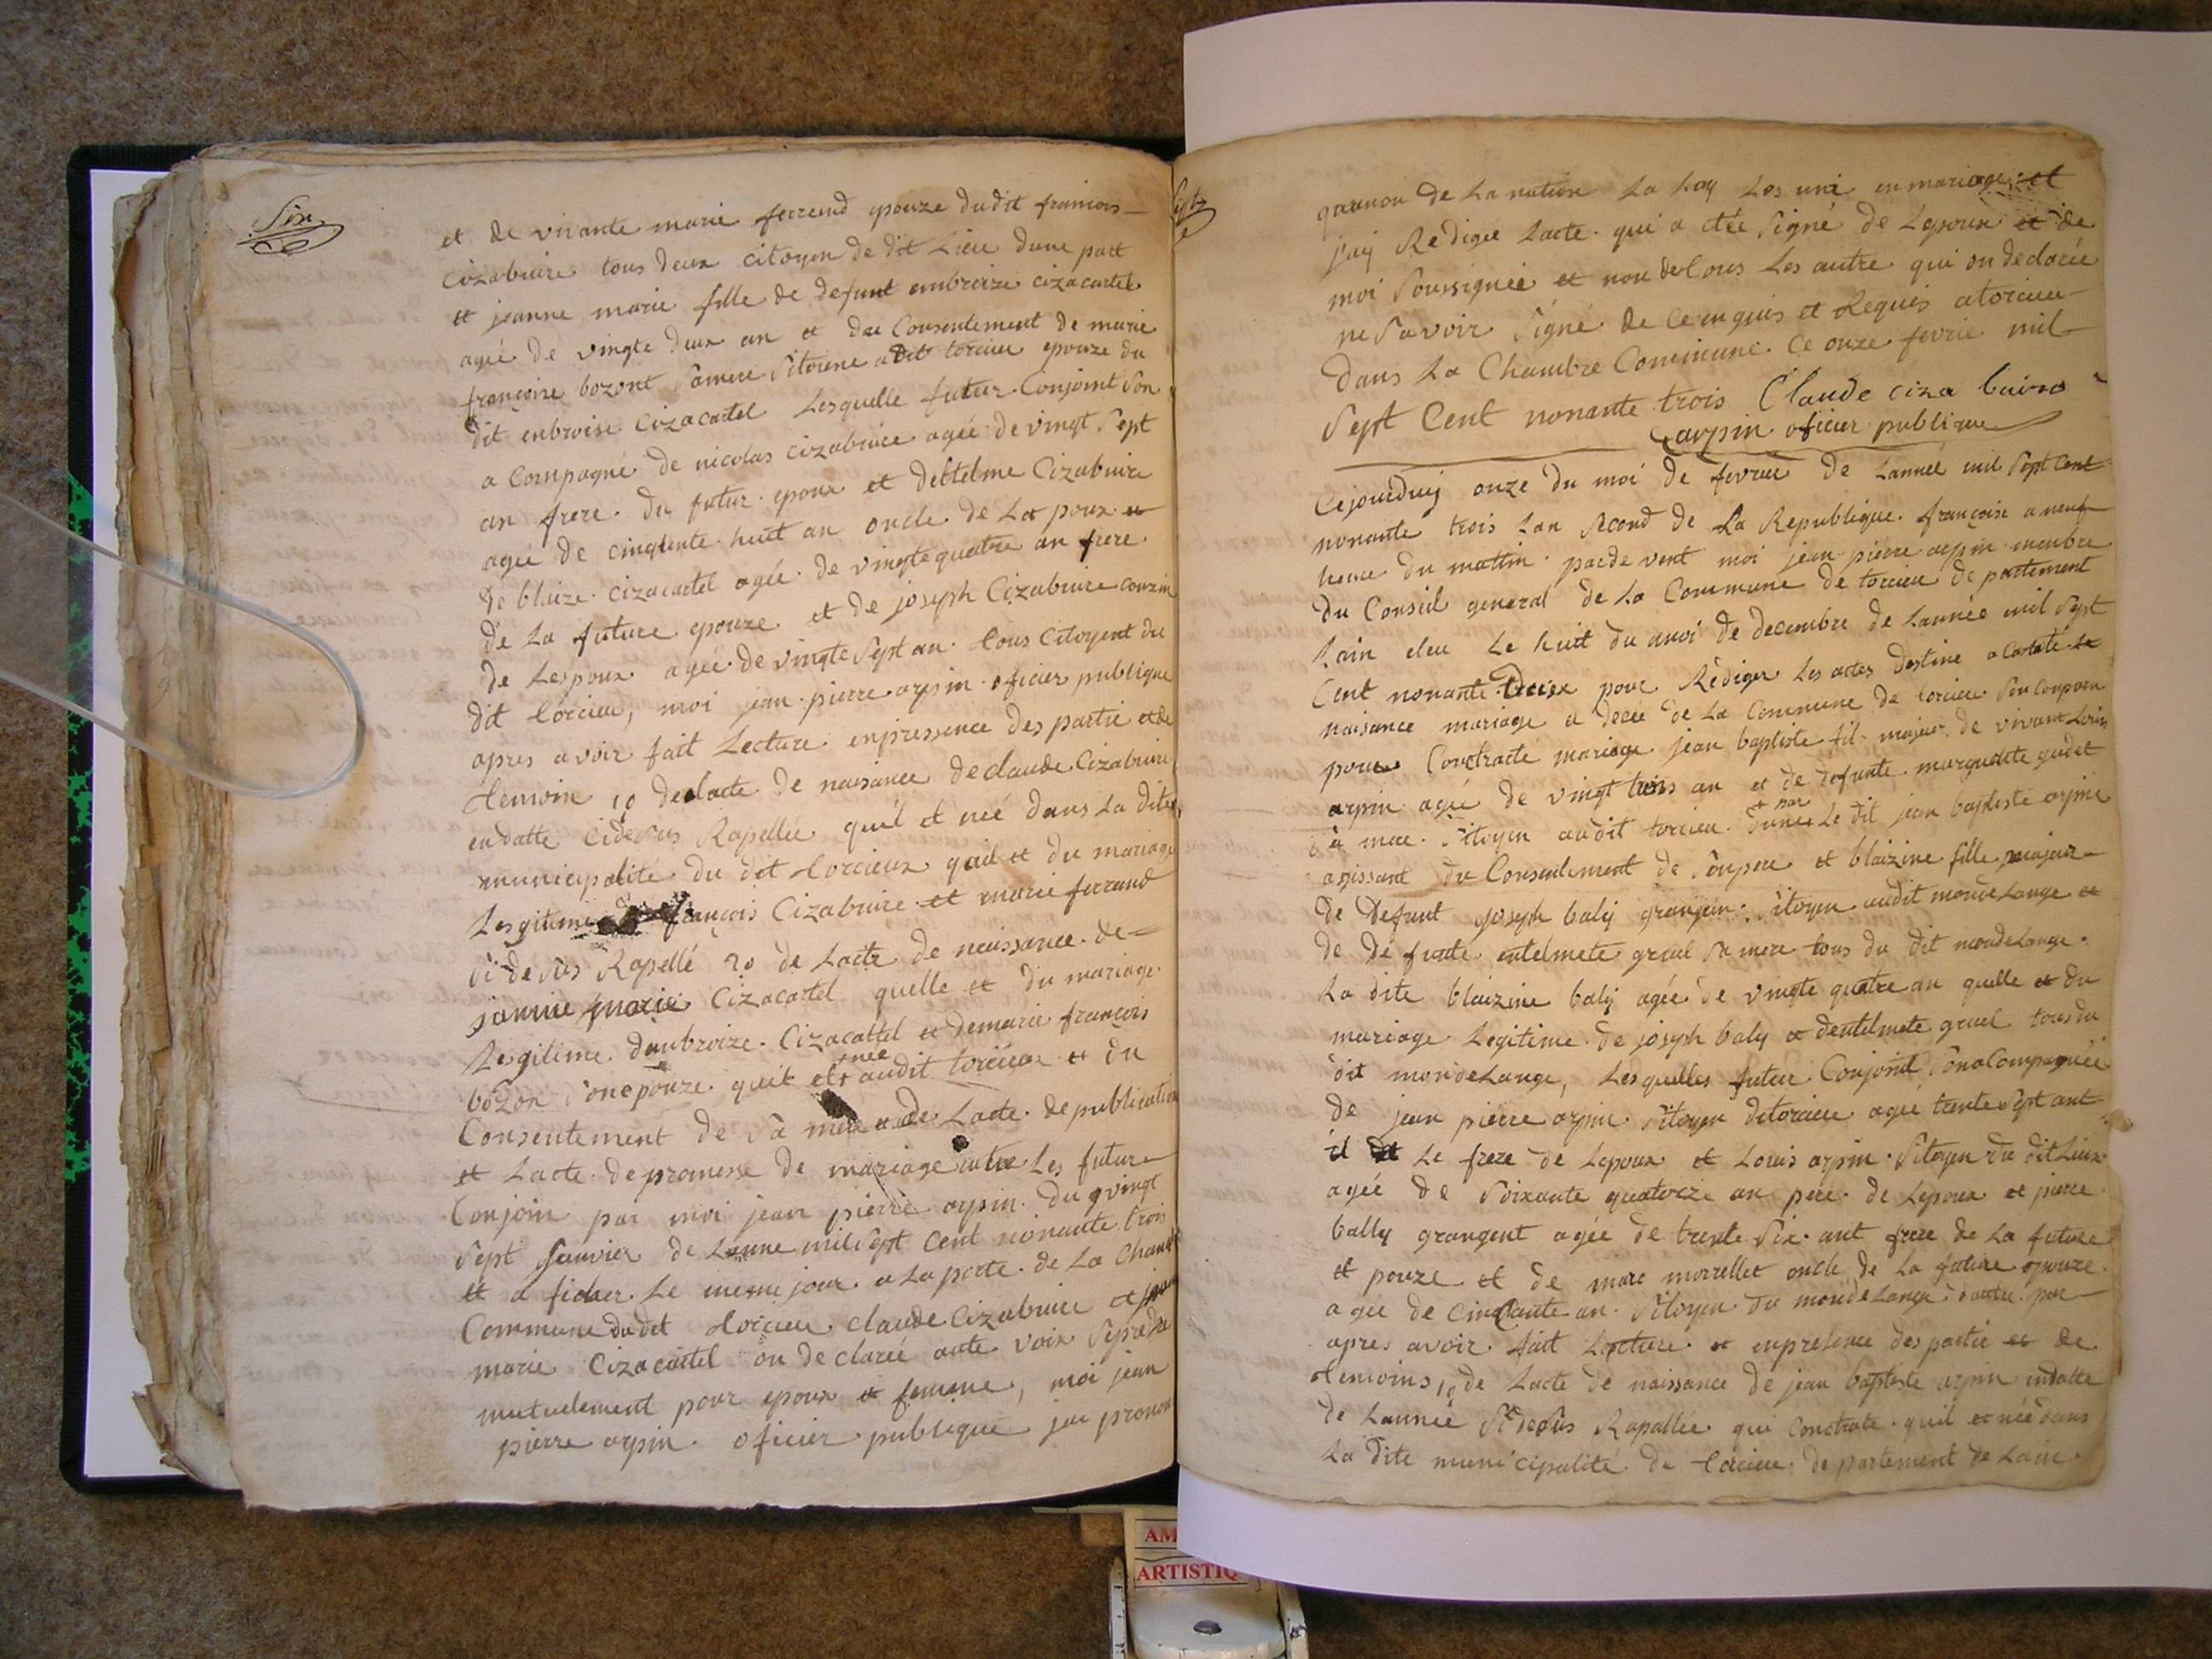 Six
et de vivante marie ferrend epouze dudit francois
Cizabuire tous deux citoyen de dit Lieu dune part
et jeanne marie fille de defunt enbroize cizacartel
ageé de vingte deux an et du Consentement de marie
françoise bozont Samere Sitoiene a dit torcieu epouze du
dit enbroise Cizacartel Lesquelle futur Conjoint Son
a Compagné de nicolas cizabuice ageé de vingt Sept
an frere du futur epoux et de Cizabuire
ageé de cinquente huit an oncle de La poux et
de blaize cizacartel ageé de vingte quatre an frere
de La future epouze et de joseph Cizabuire couzin
de Lespoux ageé de vingte Sept an tous Citoyent du
dit torcieu, moi jean pierre arpin oficier publique
apres avoir fait Lecture enpressence des partie et de
temoin 1º de lacte de naisance de claude Cizabuire
en datte Cidesus Rapelleé quil et neé dans La dite
municipalité du dit torcieux quil et du mariage
Lesgitime de francois Cizabuire et marie ferrand
Si desus Rapellé 2º de Lacte de naissance de
jannie marie Cizacartel quelle et du mariage
Legitime danbroize Cizacattel et demarie françois
bozon Son epouze quil et neé audit torcieux et du
Consentement de Sa mere et de Lacte de publication
et Lacte de promesse de mariage entre Les futur
Conjoin par moi jean pierre arpin du vingt
Sept Janvier de Lanne mil Sept Cent nonante trois
et a ficher Le meme jour a La porte de La Chambre
Commune du dit torcieu claude Cizabuire et jane
marie Cizacartel on declareé aute voix Seprendre
mutuelement pour epoux et femme, moi jean
pierre arpin oficier publique jai pronon
Sept
quaunon de La nation La Loy Les uni en mariage et
j'aij Redigeé Lacte qui a eteé Signé de Lepoux et de
moi Soussigneé et non de tous Les autre qui on declareé
ne Savoir Signé de ce enquis et Requis atorcieu
dans La Chambre Commune Ce onze fevrie mil
Sept Cent nonante trois Claude ciza buire
arpin oficier publique
Cejourduij onze du moi de fevrier de Lanneé mil Sept Cent
nonante trois Lan Second de La Republique françoise a neuf
heure du mattin parde vent moi jean pierre arpin menbre
du Conseil general de La Commune de torcieu de partement
Lain eleu Le huit du moi de decembre de Lanneé mil Sept
Cent nonante deux pour Rèdiger Les actes destine a
naisance mariage a deceé de La Commune de torcieu Son Conparu
pour Contracté mariage jean baptiste fil majeur de vivant Louis
arpin ageé de vingt trois an et de defunte marguerite gudet
Sa mere Sitoyen audit torcieu dune par Le dit jean baptiste arpin
agissant du Consentement de Sonpere et blaizine fille majeur
de Defunt joseph baly granjein Sitoyen audit mondelange et
de De funte entelmete gruel Sa mere tous du dit mondelange
La dite blaizine baly ageé de vingte quatre an quelle et du
mariage Legitime de joseph baly et dentelmete gruel tous du
dit mondelange, Lesquelles futur Conjoint Son a Compagneé
de jean pierre arpin Sitoyen detorcieu ageé trente Sept ant
il et Le frere de Lepoux et Louis arpin Sitoyen du dit Lieux
ageé de Soixante quatorze an pere de Lepoux et pierre
bally grangent ageé de trente Six ant frere de La future
et pouze et de marc morrellet oncle de La future epouze
ageé de Cinquante an Sitoyen du mondelange dautre par
apres avoir fait Lecture et enpresence des partie et de
temoins 1º de Lacte de naissance de jean baptiste arpin endatte
de Lanneé Si desus Rapalleé qui Constrate quil et neé dans
La dite municipalité de torcieu departement de Lain
AM
ARTISTIQ